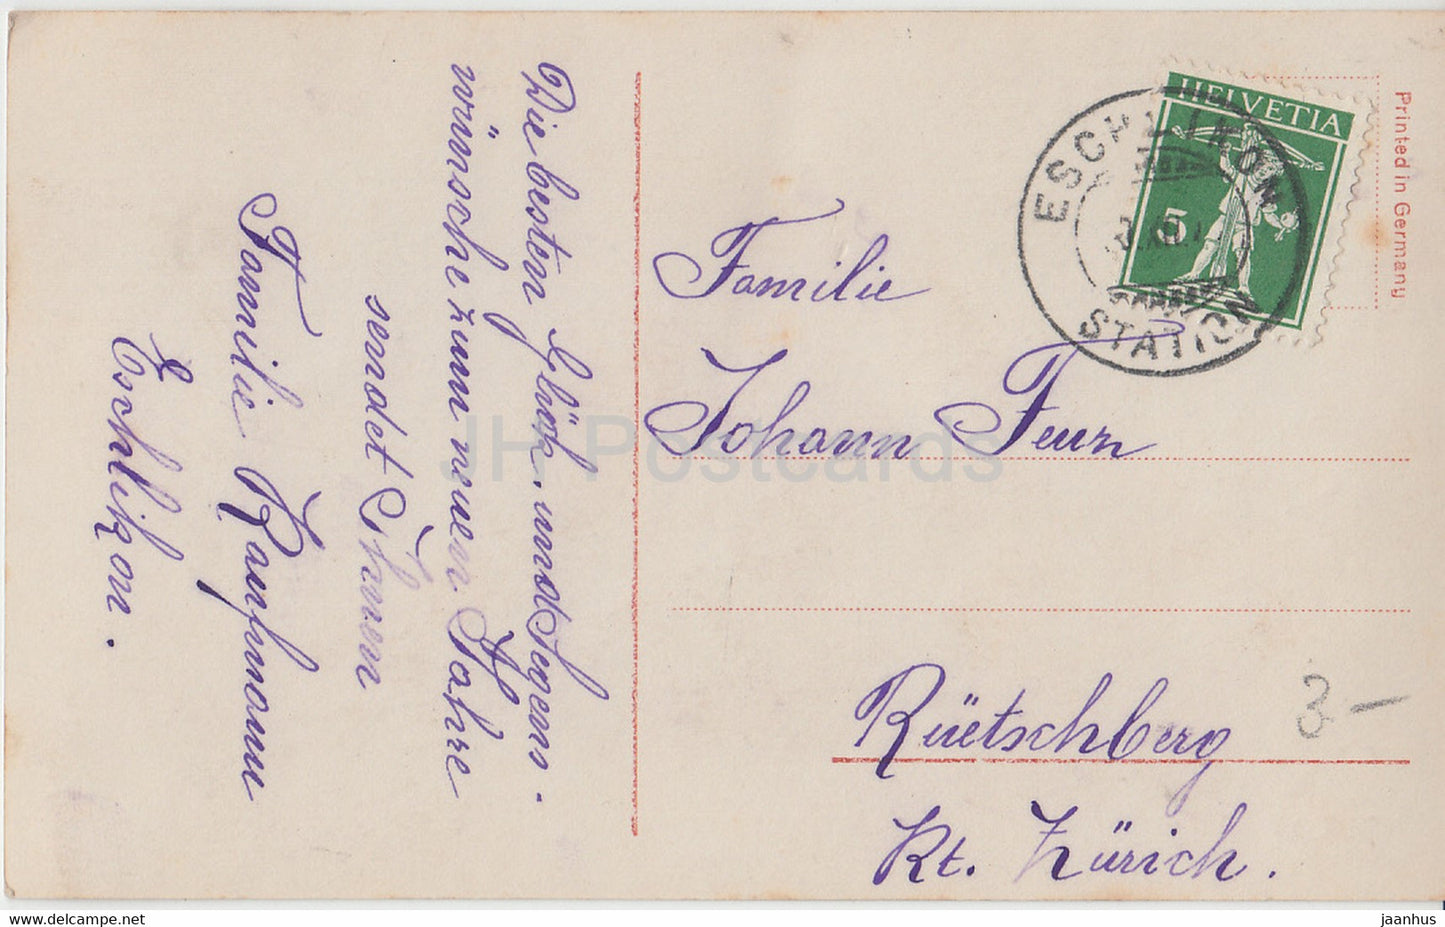 Die besten Glück- und Segens-
wünsche zum neuen Jahre
sendet Ihnen
Familie Kaufmann
Eschlikon.
Familie
Johann Feurz
Rüetschberg
Kt. Zürich.
3-
HELVETIA
5
ESCHLIKON
STATION
Printed in Germany
JH Postcards
delcampe.net
jaanhus